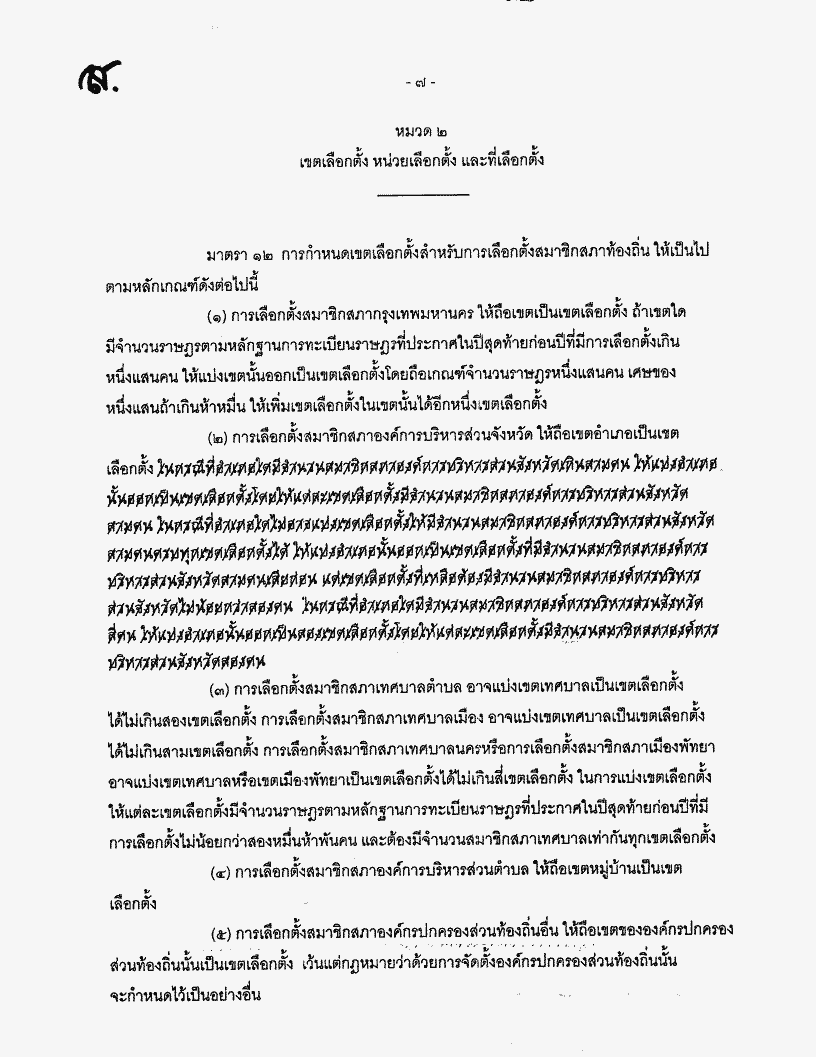 ส.
- ๗ -
หมวด ๒
เขตเลือกตั้ง หน่วยเลือกตั้ง และที่เลือกตั้ง
มาตรา ๑๒ การกำหนดเขตเลือกตั้งสำหรับการเลือกตั้งสมาชิกสภาท้องถิ่น ให้เป็นไป
ตามหลักเกณฑ์ดังต่อไปนี้
(๑) การเลือกตั้งสมาชิกสภากรุงเทพมหานคร ให้ถือเขตเป็นเขตเลือกตั้ง ถ้าเขตใด
มีจำนวนราษฎรตามหลักฐานการทะเบียนราษฎรที่ประกาศในปีสุดท้ายก่อนปีที่มีการเลือกตั้งเกิน
หนึ่งแสนคน ให้แบ่งเขตนั้นออกเป็นเขตเลือกตั้งโดยถือเกณฑ์จำนวนราษฎรหนึ่งแสนคน เศษของ
หนึ่งแสนถ้าเกินห้าหมื่น ให้เพิ่มเขตเลือกตั้งในเขตนั้นได้อีกหนึ่งเขตเลือกตั้ง
(๒) การเลือกตั้งสมาชิกสภาองค์การบริหารส่วนจังหวัด ให้ถือเขตอำเภอเป็นเขต
เลือกตั้ง ในกรณีที่อำเภอใดมีจำนวนสมาชิกสภาองค์การบริหารส่วนจังหวัดเกินสามคน ให้แบ่งอำเภอ
นั้นออกเป็นเขตเลือกตั้งโดยให้แต่ละเขตเลือกตั้งมีจำนวนสมาชิกสภาองค์การบริหารส่วนจังหวัด
สามคน ในกรณีที่อำเภอใดไม่อาจแบ่งเขตเลือกตั้งให้มีจำนวนสมาชิกสภาองค์การบริหารส่วนจังหวัด
สามคนครบทุกเขตเลือกตั้งได้ ให้แบ่งอำเภอนั้นออกเป็นเขตเลือกตั้งที่มีจำนวนสมาชิกสภาองค์การ
บริหารส่วนจังหวัดสามคนเสียก่อน แต่เขตเลือกตั้งที่เหลือต้องมีจำนวนสมาชิกสภาองค์การบริหาร
ส่วนจังหวัดไม่น้อยกว่าสองคน ในกรณีที่อำเภอใดมีจำนวนสมาชิกสภาองค์การบริหารส่วนจังหวัด
สี่คน ให้แบ่งอำเภอนั้นออกเป็นสองเขตเลือกตั้งโดยให้แต่ละเขตเลือกตั้งมีจำนวนสมาชิกสภาองค์การ
บริหารส่วนจังหวัดสองคน
(๓) การเลือกตั้งสมาชิกสภาเทศบาลตำบล อาจแบ่งเขตเทศบาลเป็นเขตเลือกตั้ง
ได้ไม่เกินสองเขตเลือกตั้ง การเลือกตั้งสมาชิกสภาเทศบาลเมือง อาจแบ่งเขตเทศบาลเป็นเขตเลือกตั้ง
ได้ไม่เกินสามเขตเลือกตั้ง การเลือกตั้งสมาชิกสภาเทศบาลนครหรือการเลือกตั้งสมาชิกสภาเมืองพัทยา
อาจแบ่งเขตเทศบาลหรือเขตเมืองพัทยาเป็นเขตเลือกตั้งได้ไม่เกินสี่เขตเลือกตั้ง ในการแบ่งเขตเลือกตั้ง
ให้แต่ละเขตเลือกตั้งมีจำนวนราษฎรตามหลักฐานการทะเบียนราษฎรที่ประกาศในปีสุดท้ายก่อนปีที่มี
การเลือกตั้งไม่น้อยกว่าสองหมื่นห้าพันคน และต้องมีจำนวนสมาชิกสภาเทศบาลเท่ากันทุกเขตเลือกตั้ง
(๔) การเลือกตั้งสมาชิกสภาองค์การบริหารส่วนตำบล ให้ถือเขตหมู่บ้านเป็นเขต
เลือกตั้ง
(๕) การเลือกตั้งสมาชิกสภาองค์กรปกครองส่วนท้องถิ่นอื่น ให้ถือเขตขององค์กรปกครอง
ส่วนท้องถิ่นนั้นเป็นเขตเลือกตั้ง เว้นแต่กฎหมายว่าด้วยการจัดตั้งองค์กรปกครองส่วนท้องถิ่นนั้น
จะกำหนดไว้เป็นอย่างอื่น